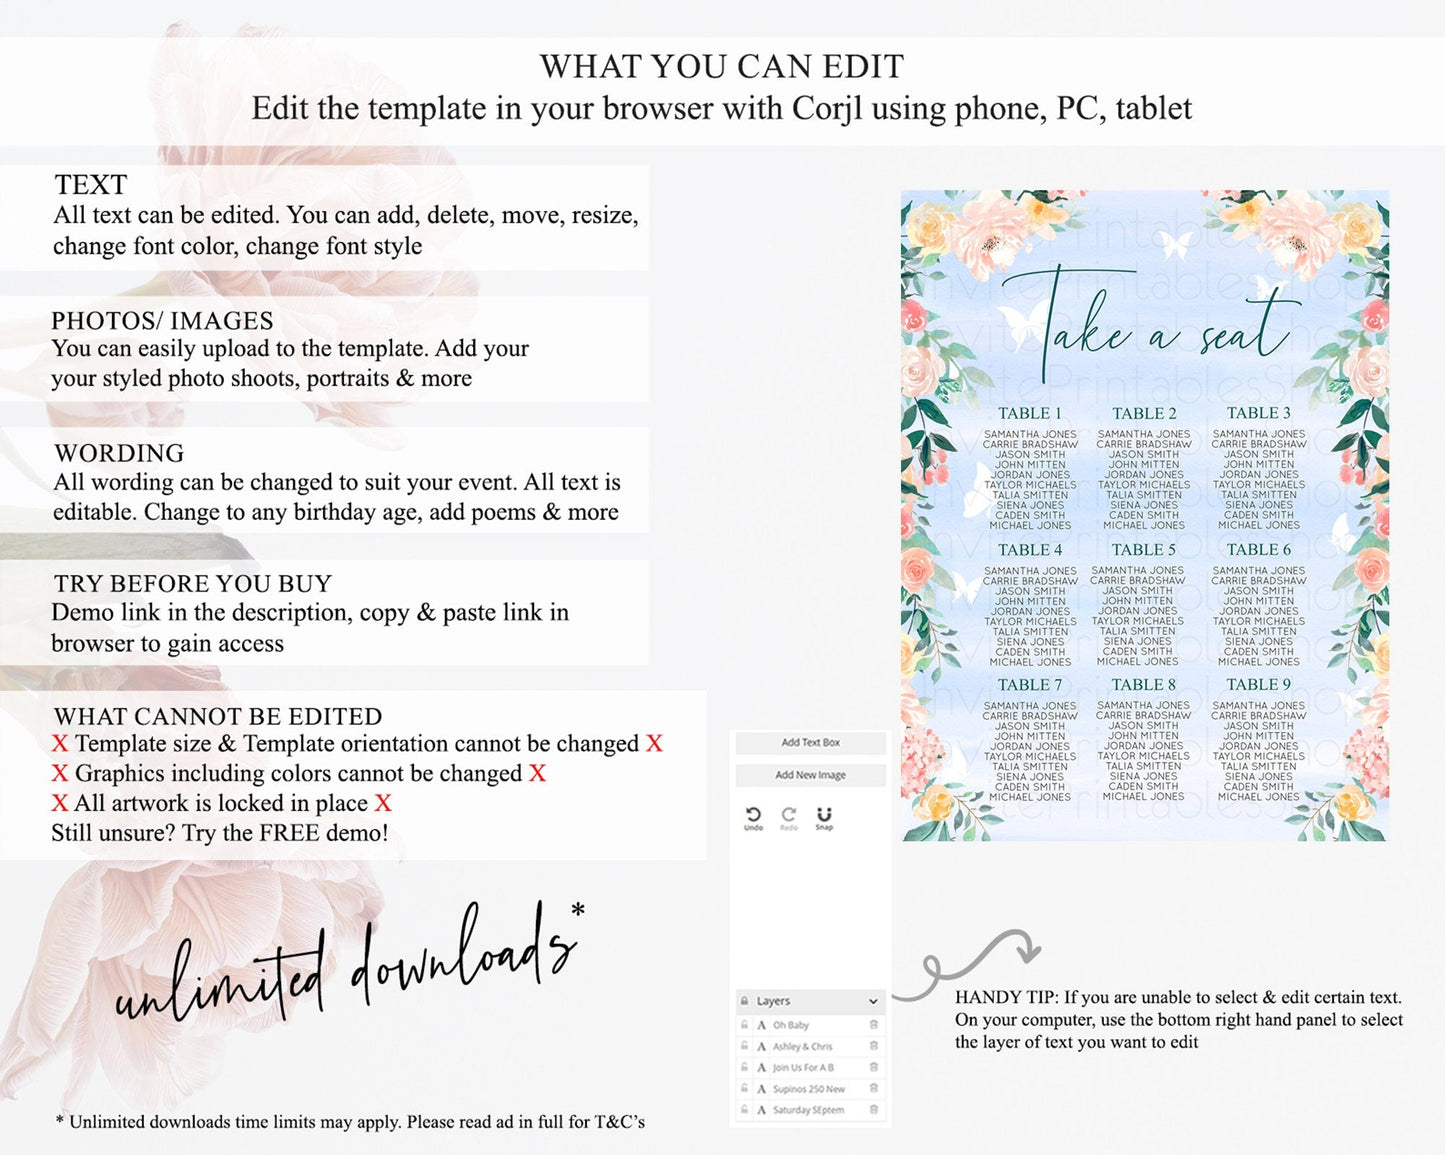 WHAT YOU CAN EDIT
Edit the template in your browser with Corjl using phone, PC, tablet
TEXT
All text can be edited. You can add, delete, move, resize,
change font color, change font style
PHOTOS/ IMAGES
You can easily upload to the template. Add your
your styled photo shoots, portraits & more
WORDING
All wording can be changed to suit your event. All text is
editable. Change to any birthday age, add poems & more
TRY BEFORE YOU BUY
Demo link in the description, copy & paste link in
browser to gain access
WHAT CANNOT BE EDITED
X Template size & Template orientation cannot be changed X
X Graphics including colors cannot be changed X
X All artwork is locked in place X
Still unsure? Try the FREE demo!
unlimited downloads*
* Unlimited downloads time limits may apply. Please read ad in full for T&C's
Take a seat
TABLE 1
SAMANTHA JONES
CARRIE BRADSHAW
JASON SMITH
JOHN MITTEN
JORDAN JONES
TAYLOR MICHAELS
TALIA SMITTEN
SIENA JONES
CADEN SMITH
MICHAEL JONES
TABLE 2
SAMANTHA JONES
CARRIE BRADSHAW
JASON SMITH
JOHN MITTEN
JORDAN JONES
TAYLOR MICHAELS
TALIA SMITTEN
SIENA JONES
CADEN SMITH
MICHAEL JONES
TABLE 3
SAMANTHA JONES
CARRIE BRADSHAW
JASON SMITH
JOHN MITTEN
JORDAN JONES
TAYLOR MICHAELS
TALIA SMITTEN
SIENA JONES
CADEN SMITH
MICHAEL JONES
TABLE 4
SAMANTHA JONES
CARRIE BRADSHAW
JASON SMITH
JOHN MITTEN
JORDAN JONES
TAYLOR MICHAELS
TALIA SMITTEN
SIENA JONES
CADEN SMITH
MICHAEL JONES
TABLE 5
SAMANTHA JONES
CARRIE BRADSHAW
JASON SMITH
JOHN MITTEN
JORDAN JONES
TAYLOR MICHAELS
TALIA SMITTEN
SIENA JONES
CADEN SMITH
MICHAEL JONES
TABLE 6
SAMANTHA JONES
CARRIE BRADSHAW
JASON SMITH
JOHN MITTEN
JORDAN JONES
TAYLOR MICHAELS
TALIA SMITTEN
SIENA JONES
CADEN SMITH
MICHAEL JONES
TABLE 7
SAMANTHA JONES
CARRIE BRADSHAW
JASON SMITH
JOHN MITTEN
JORDAN JONES
TAYLOR MICHAELS
TALIA SMITTEN
SIENA JONES
CADEN SMITH
MICHAEL JONES
TABLE 8
SAMANTHA JONES
CARRIE BRADSHAW
JASON SMITH
JOHN MITTEN
JORDAN JONES
TAYLOR MICHAELS
TALIA SMITTEN
SIENA JONES
CADEN SMITH
MICHAEL JONES
TABLE 9
SAMANTHA JONES
CARRIE BRADSHAW
JASON SMITH
JOHN MITTEN
JORDAN JONES
TAYLOR MICHAELS
TALIA SMITTEN
SIENA JONES
CADEN SMITH
MICHAEL JONES
Add Text Box
Add New Image
Undo Redo Snap
Layers
A Oh Baby
A Ashley & Chris
A Join Us For A B
A Supinos 250 New
A Saturday SEptem
HANDY TIP: If you are unable to select & edit certain text.
On your computer, use the bottom right hand panel to select
the layer of text you want to edit